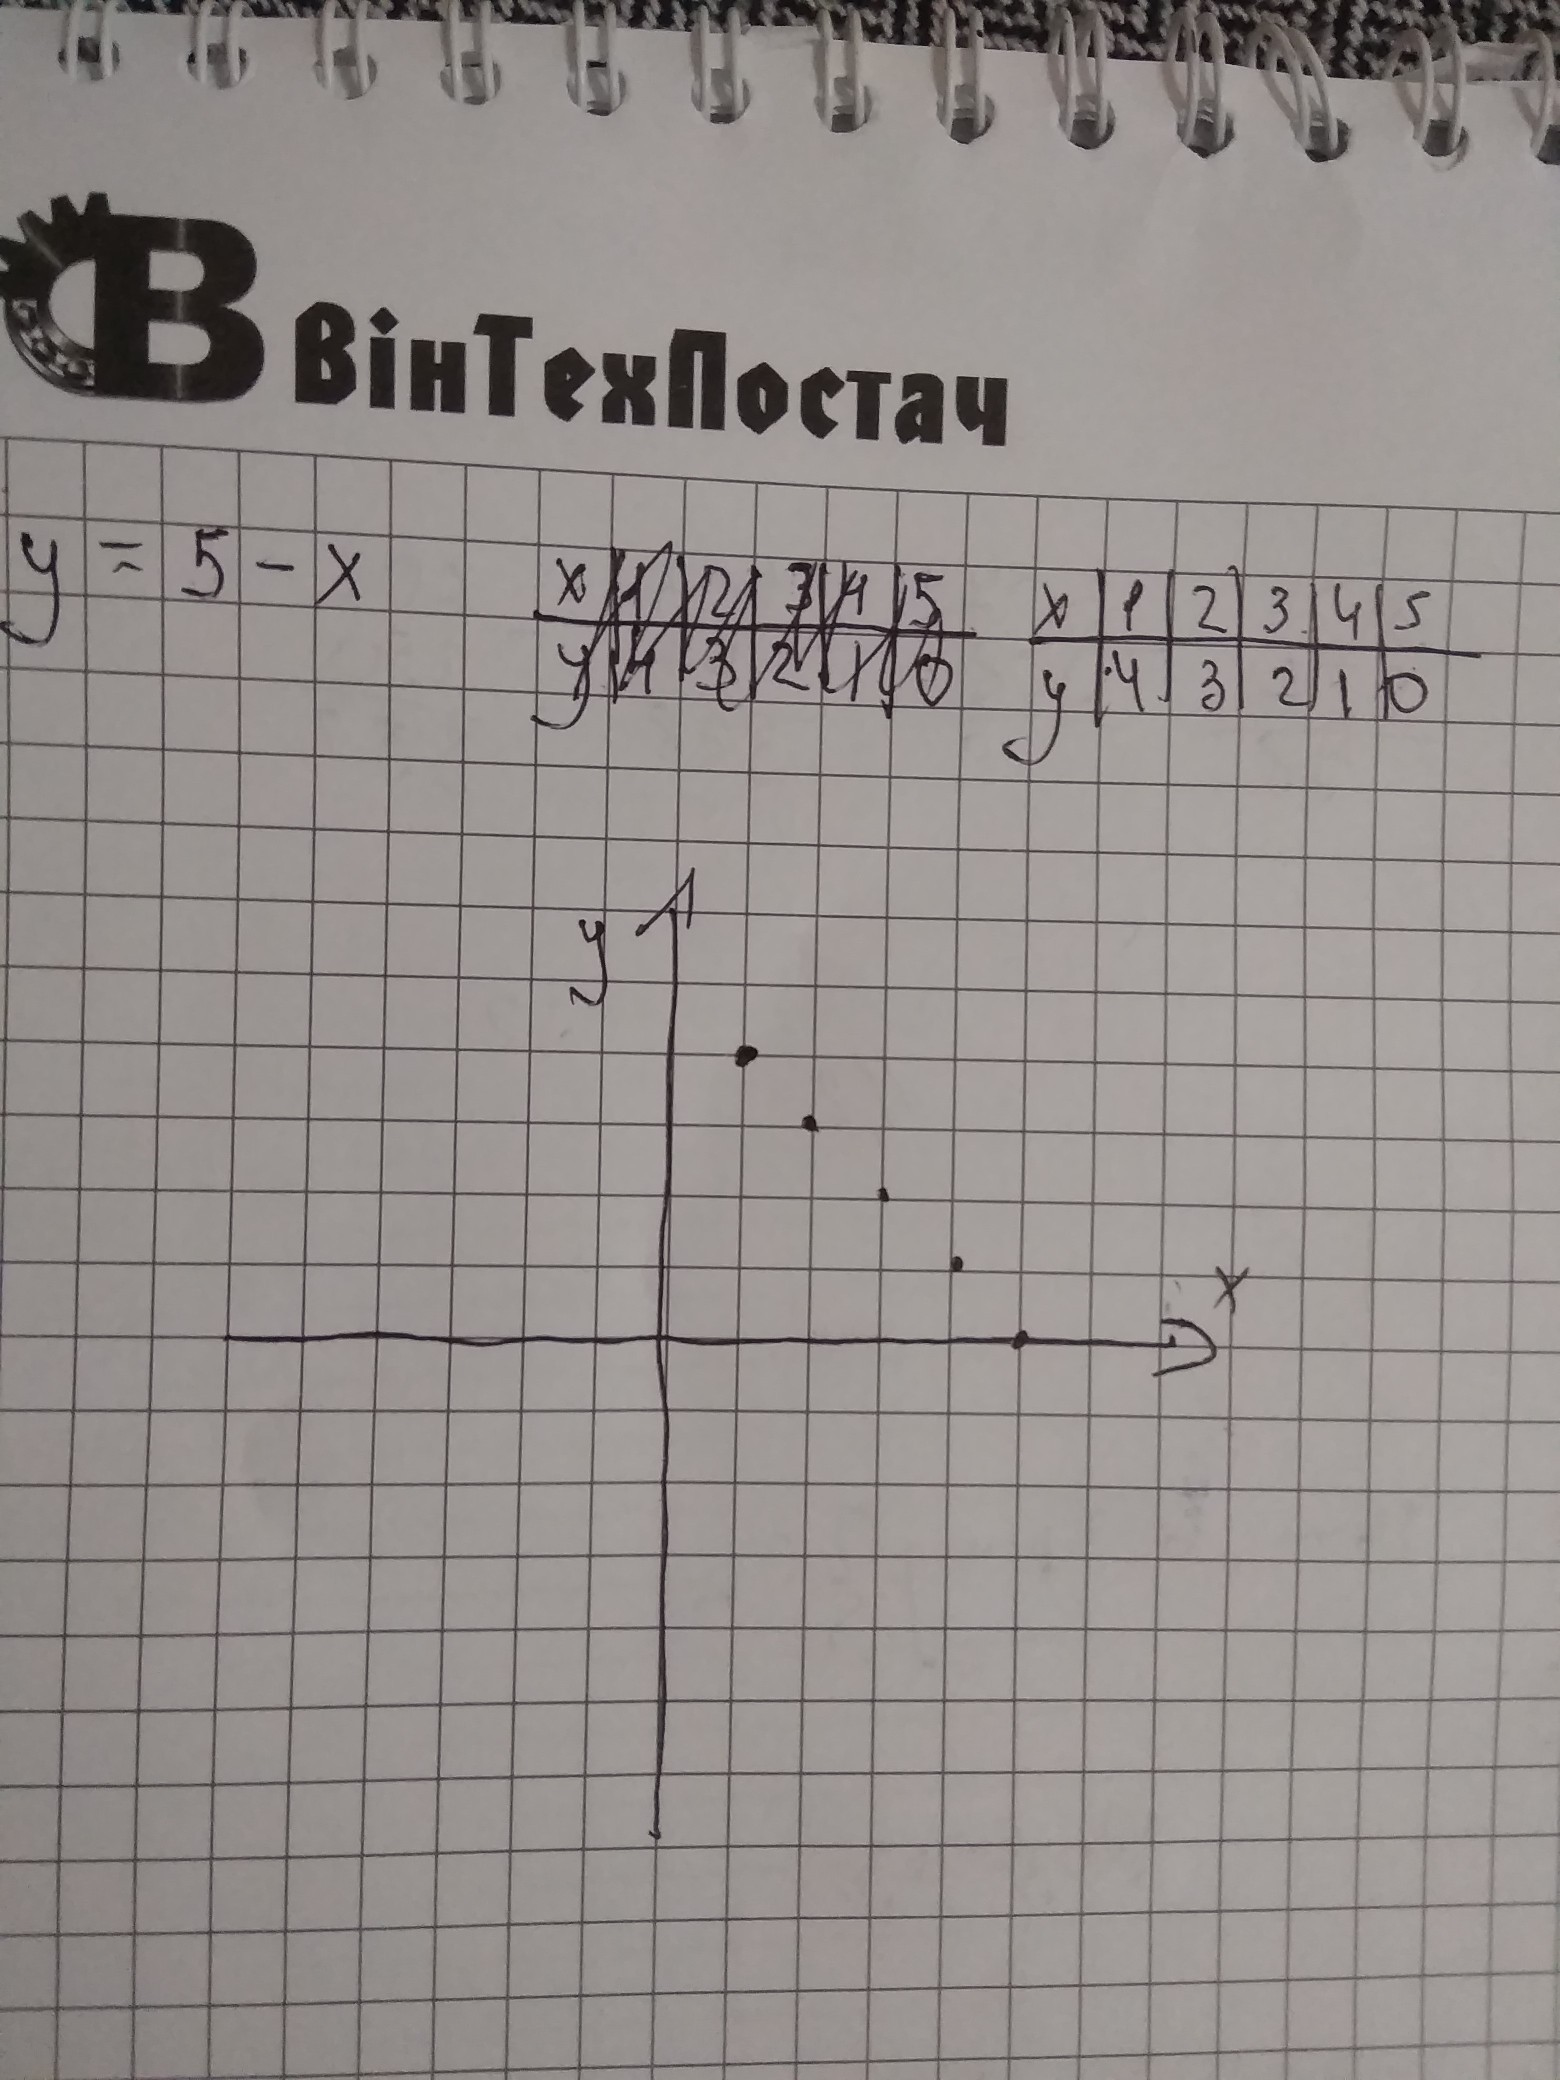 ВінТехПостач
y = 5 - x
x 1 2 3 4 5
y 4 3 2 1 0
x 1 2 3 4 5
y 4 3 2 1 0
y
x